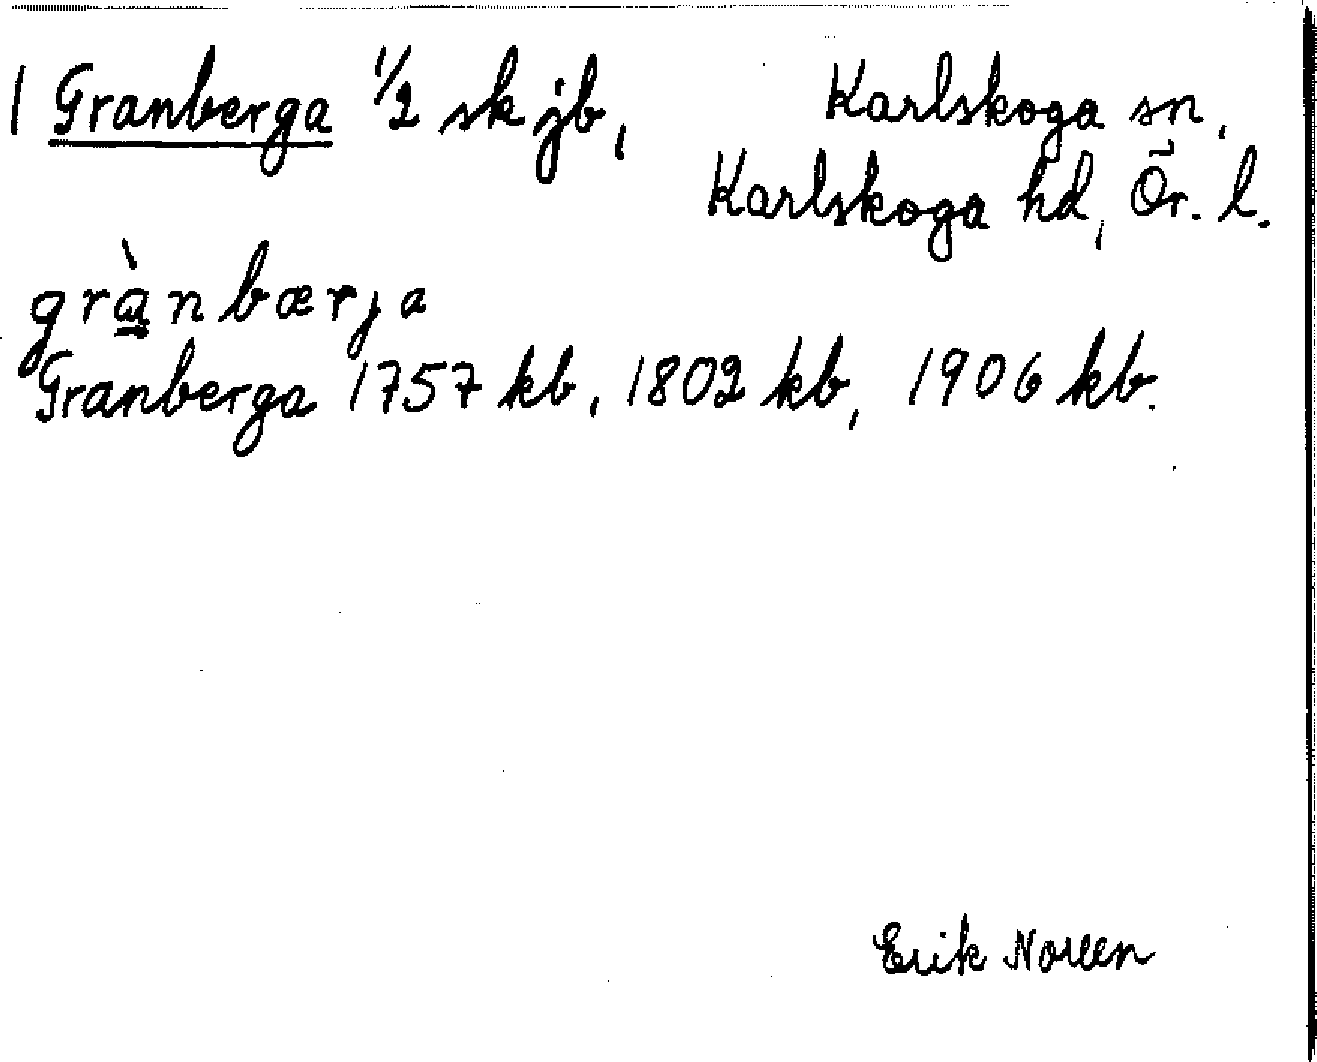 1 Granberga 1/2 sk jb,
Karlskoga sn,
Karlskoga hd, Ör. l.
grànbærja
Granberga 1757 kb, 1802 kb, 1906 kb.
Erik Noreen